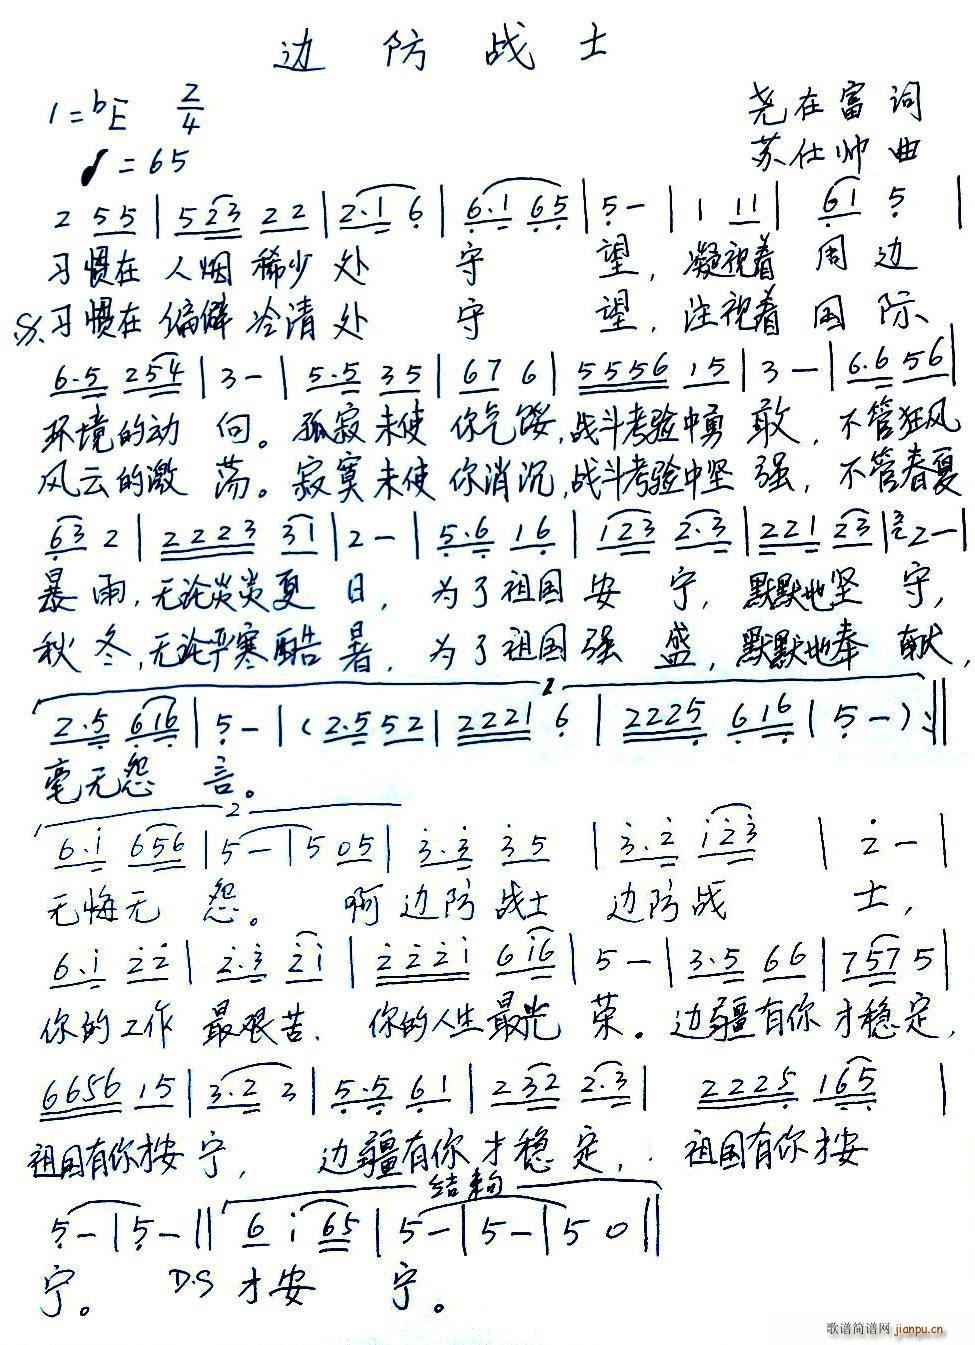 边 防 战 士
1=bE 2/4
尧在富 词
♩=65
苏仕帅 曲
2 55 | 523 22 | 2·1 6 | 6·1 65 | 5 - | 1 11 | 61 5 |
习惯在 人烟 稀少 处 守 望, 凝视着 周 边
习惯在 偏僻 冷清 处 守 望, 注视着 国 际
6·5 254 | 3 - | 5·5 35 | 67 6 | 5556 15 | 3 - | 6·6 56 |
环境的动 向。 孤寂未使 你气馁, 战斗考验中勇 敢, 不管狂风
风云的激 荡。 寂寞未使 你消沉, 战斗考验中坚 强, 不管春夏
63 2 | 2223 31 | 2 - | 5·6 16 | 123 2·3 | 221 23 | 32 - |
暴 雨, 无论炎炎夏 日, 为了祖国 安 宁, 默默地坚 守,
秋 冬, 无论严寒酷 暑, 为了祖国 强 盛, 默默地奉 献,
1
2·5 616 | 5 - | (2·5 52 | 2221 6 | 2225 616 | 5 -) :||
毫无怨 言。
2
6·i 656 | 5 - | 505 | 3·3 35 | 3·2 i23 | 2 - |
无悔无 怨。 啊 边防 战士 边防 战 士,
6·i 22 | 2·3 2i | 222i 6i6 | 5 - | 3·5 66 | 757 5 |
你的工作 最艰苦, 你的人生最光 荣。 边疆有你 才稳定,
6656 15 | 3·2 3 | 5·5 61 | 232 2·3 | 2225 165 |
祖国有你才安 宁, 边疆有你 才 稳 定, 祖国有你才安
结束句
5 - | 5 - || 6 i 65 | 5 - | 5 - | 5 0 ||
宁。 D.S 才安 宁。
歌谱简谱网
jianpu.cn